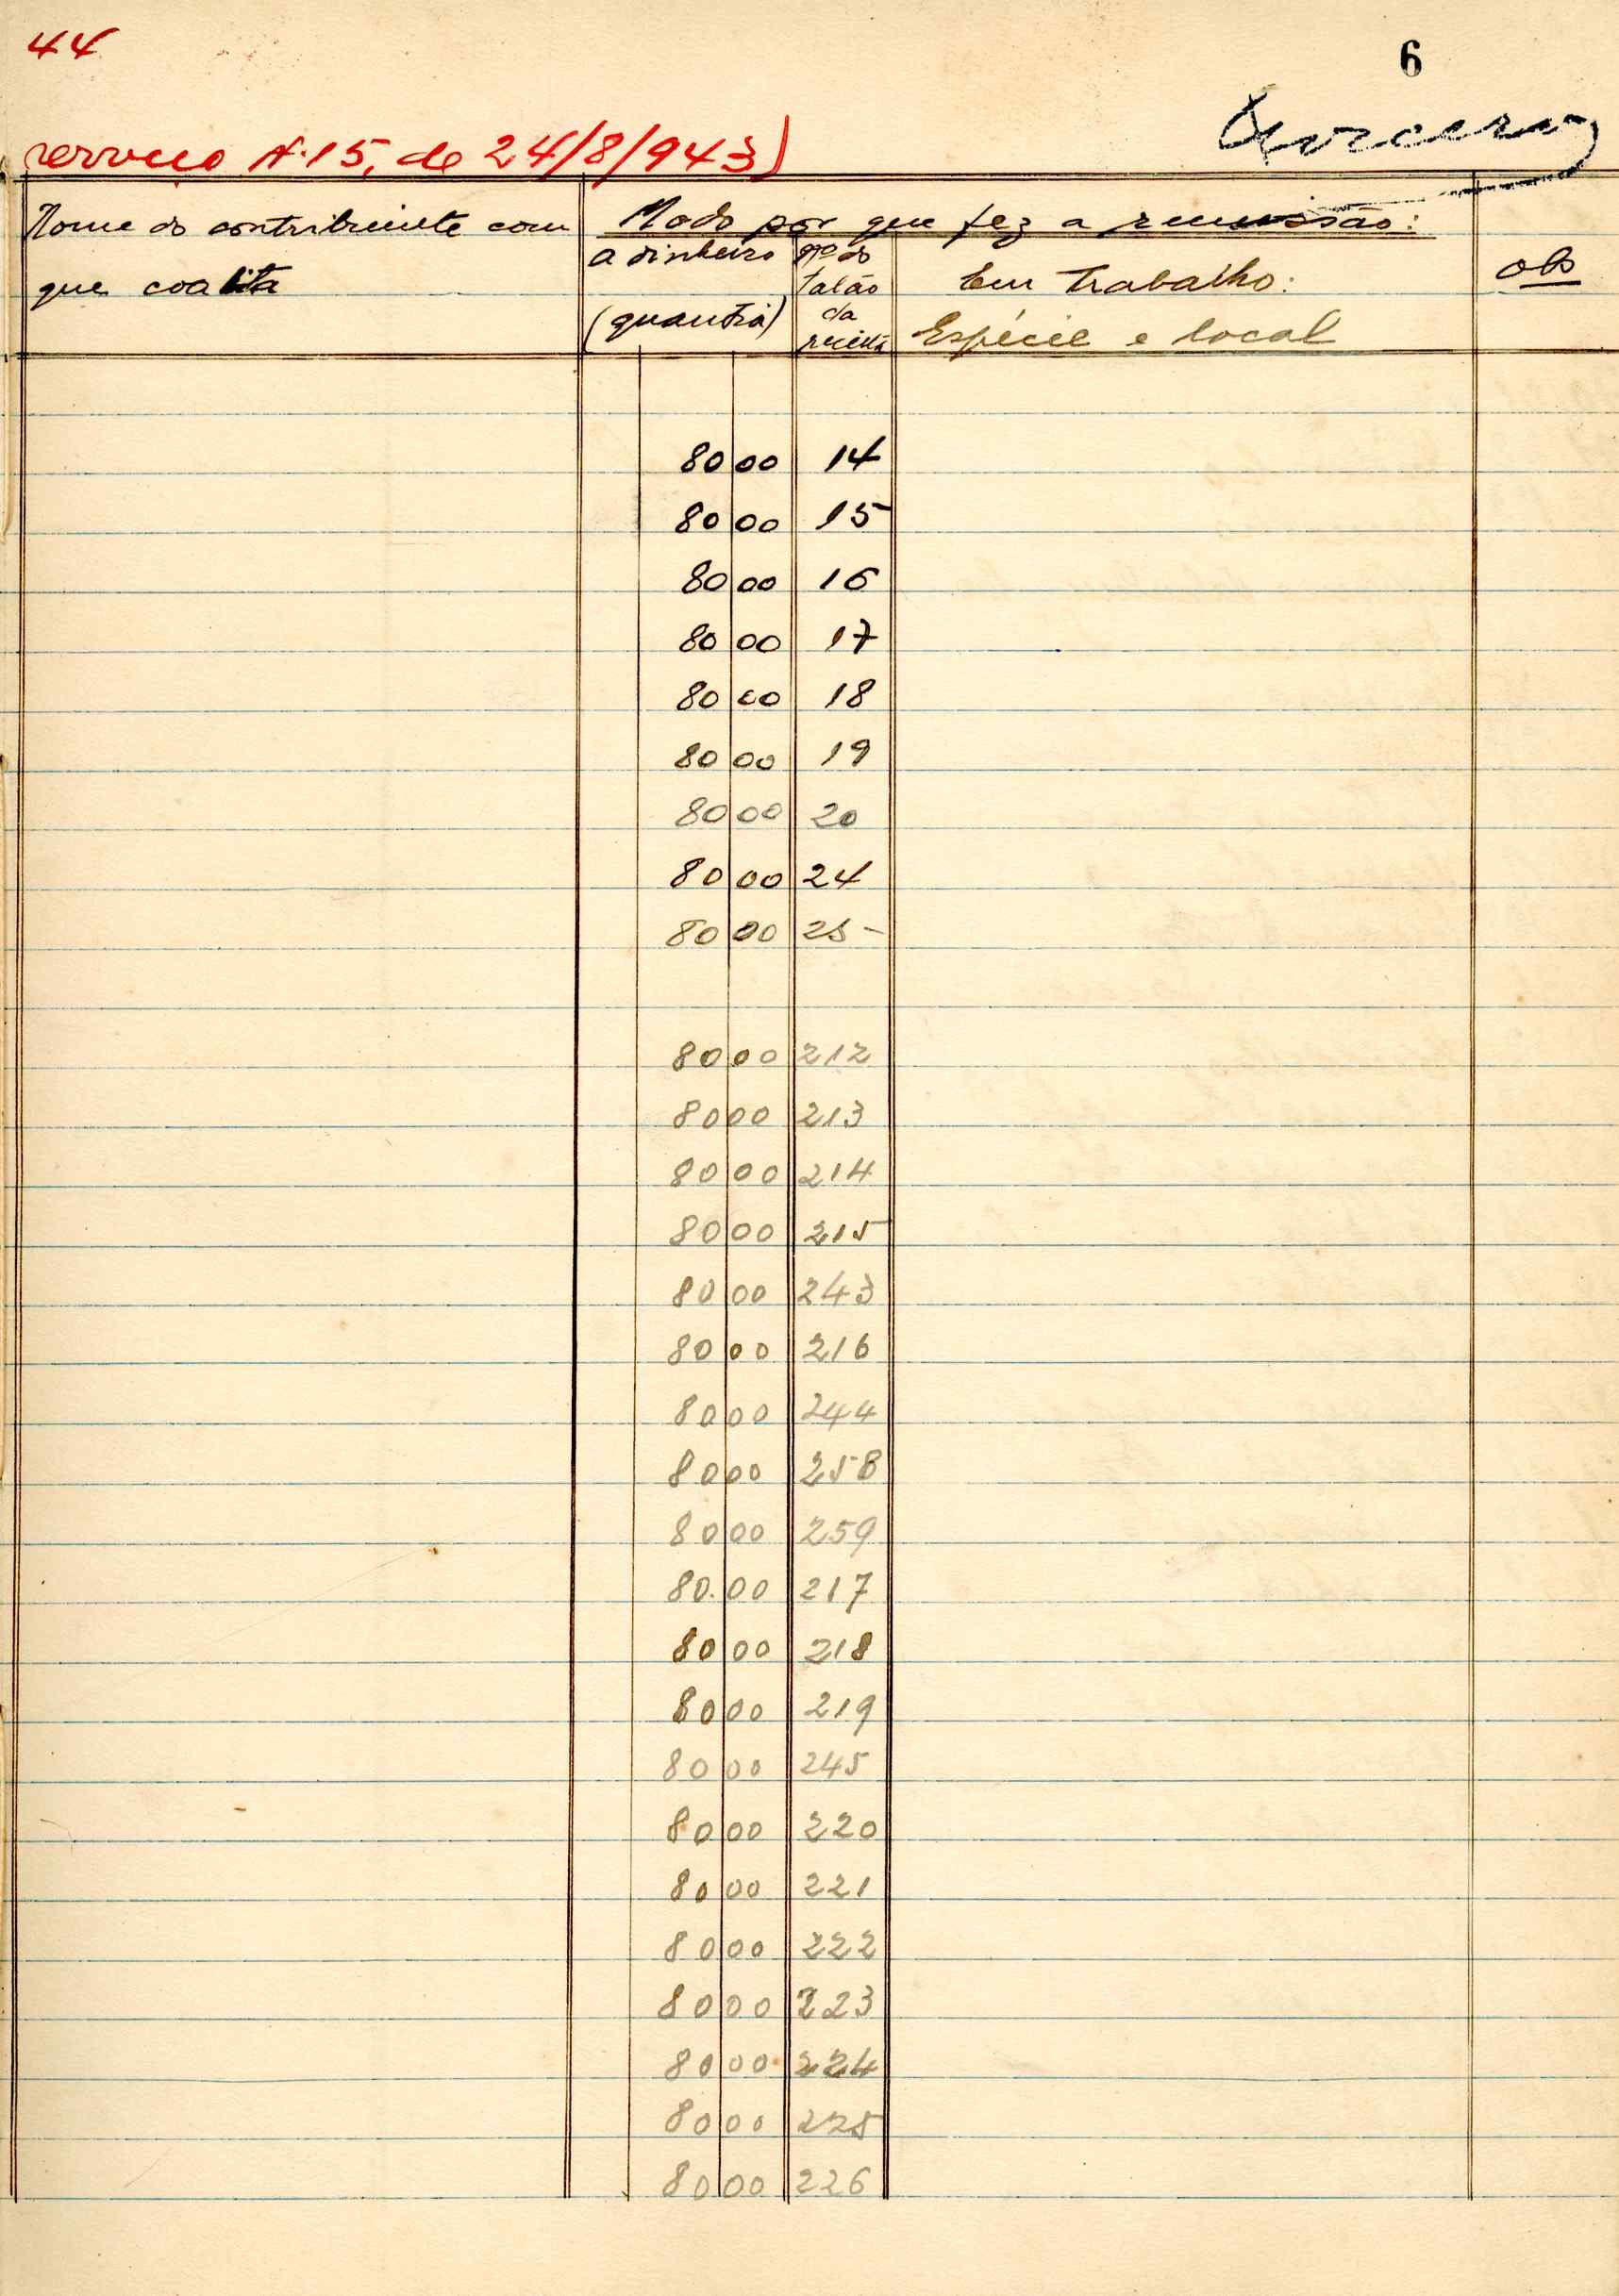 44
6
serviço Nº 15, de 24/8/943)
Nome do contribuinte com
que coabita
Modo por que fez a remissão:
a dinheiro
(quantia)
nº do
talão
da
receita
Em trabalho:
Espécie e local
obs
80 00 14
80 00 15
80 00 16
80 00 17
80 00 18
80 00 19
80 00 20
80 00 24
80 00 25
80 00 212
80 00 213
80 00 214
80 00 215
80 00 243
80 00 216
80 00 244
80 00 258
80 00 259
80.00 217
80 00 218
80 00 219
80 00 245
80 00 220
80 00 221
80 00 222
80 00 223
80 00 224
80 00 225
80 00 226